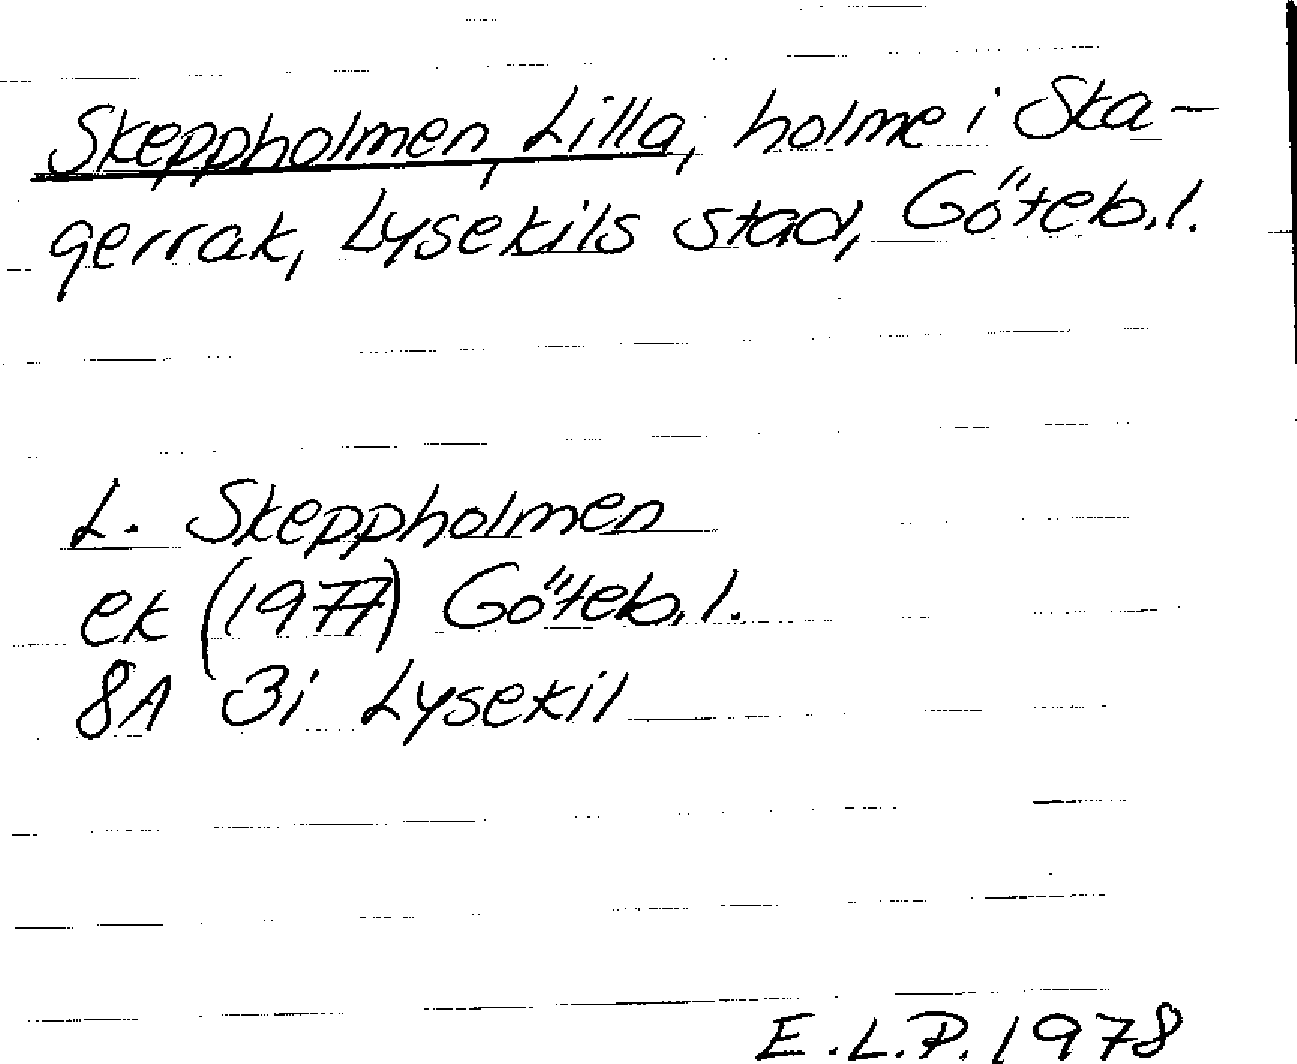 Skeppholmen, Lilla, holme i Ska-
gerrak, Lysekils stad, Göteb.l.
L. Skeppholmen
ek (1977) Göteb.l.
8A 3i Lysekil
E.L.P. 1978